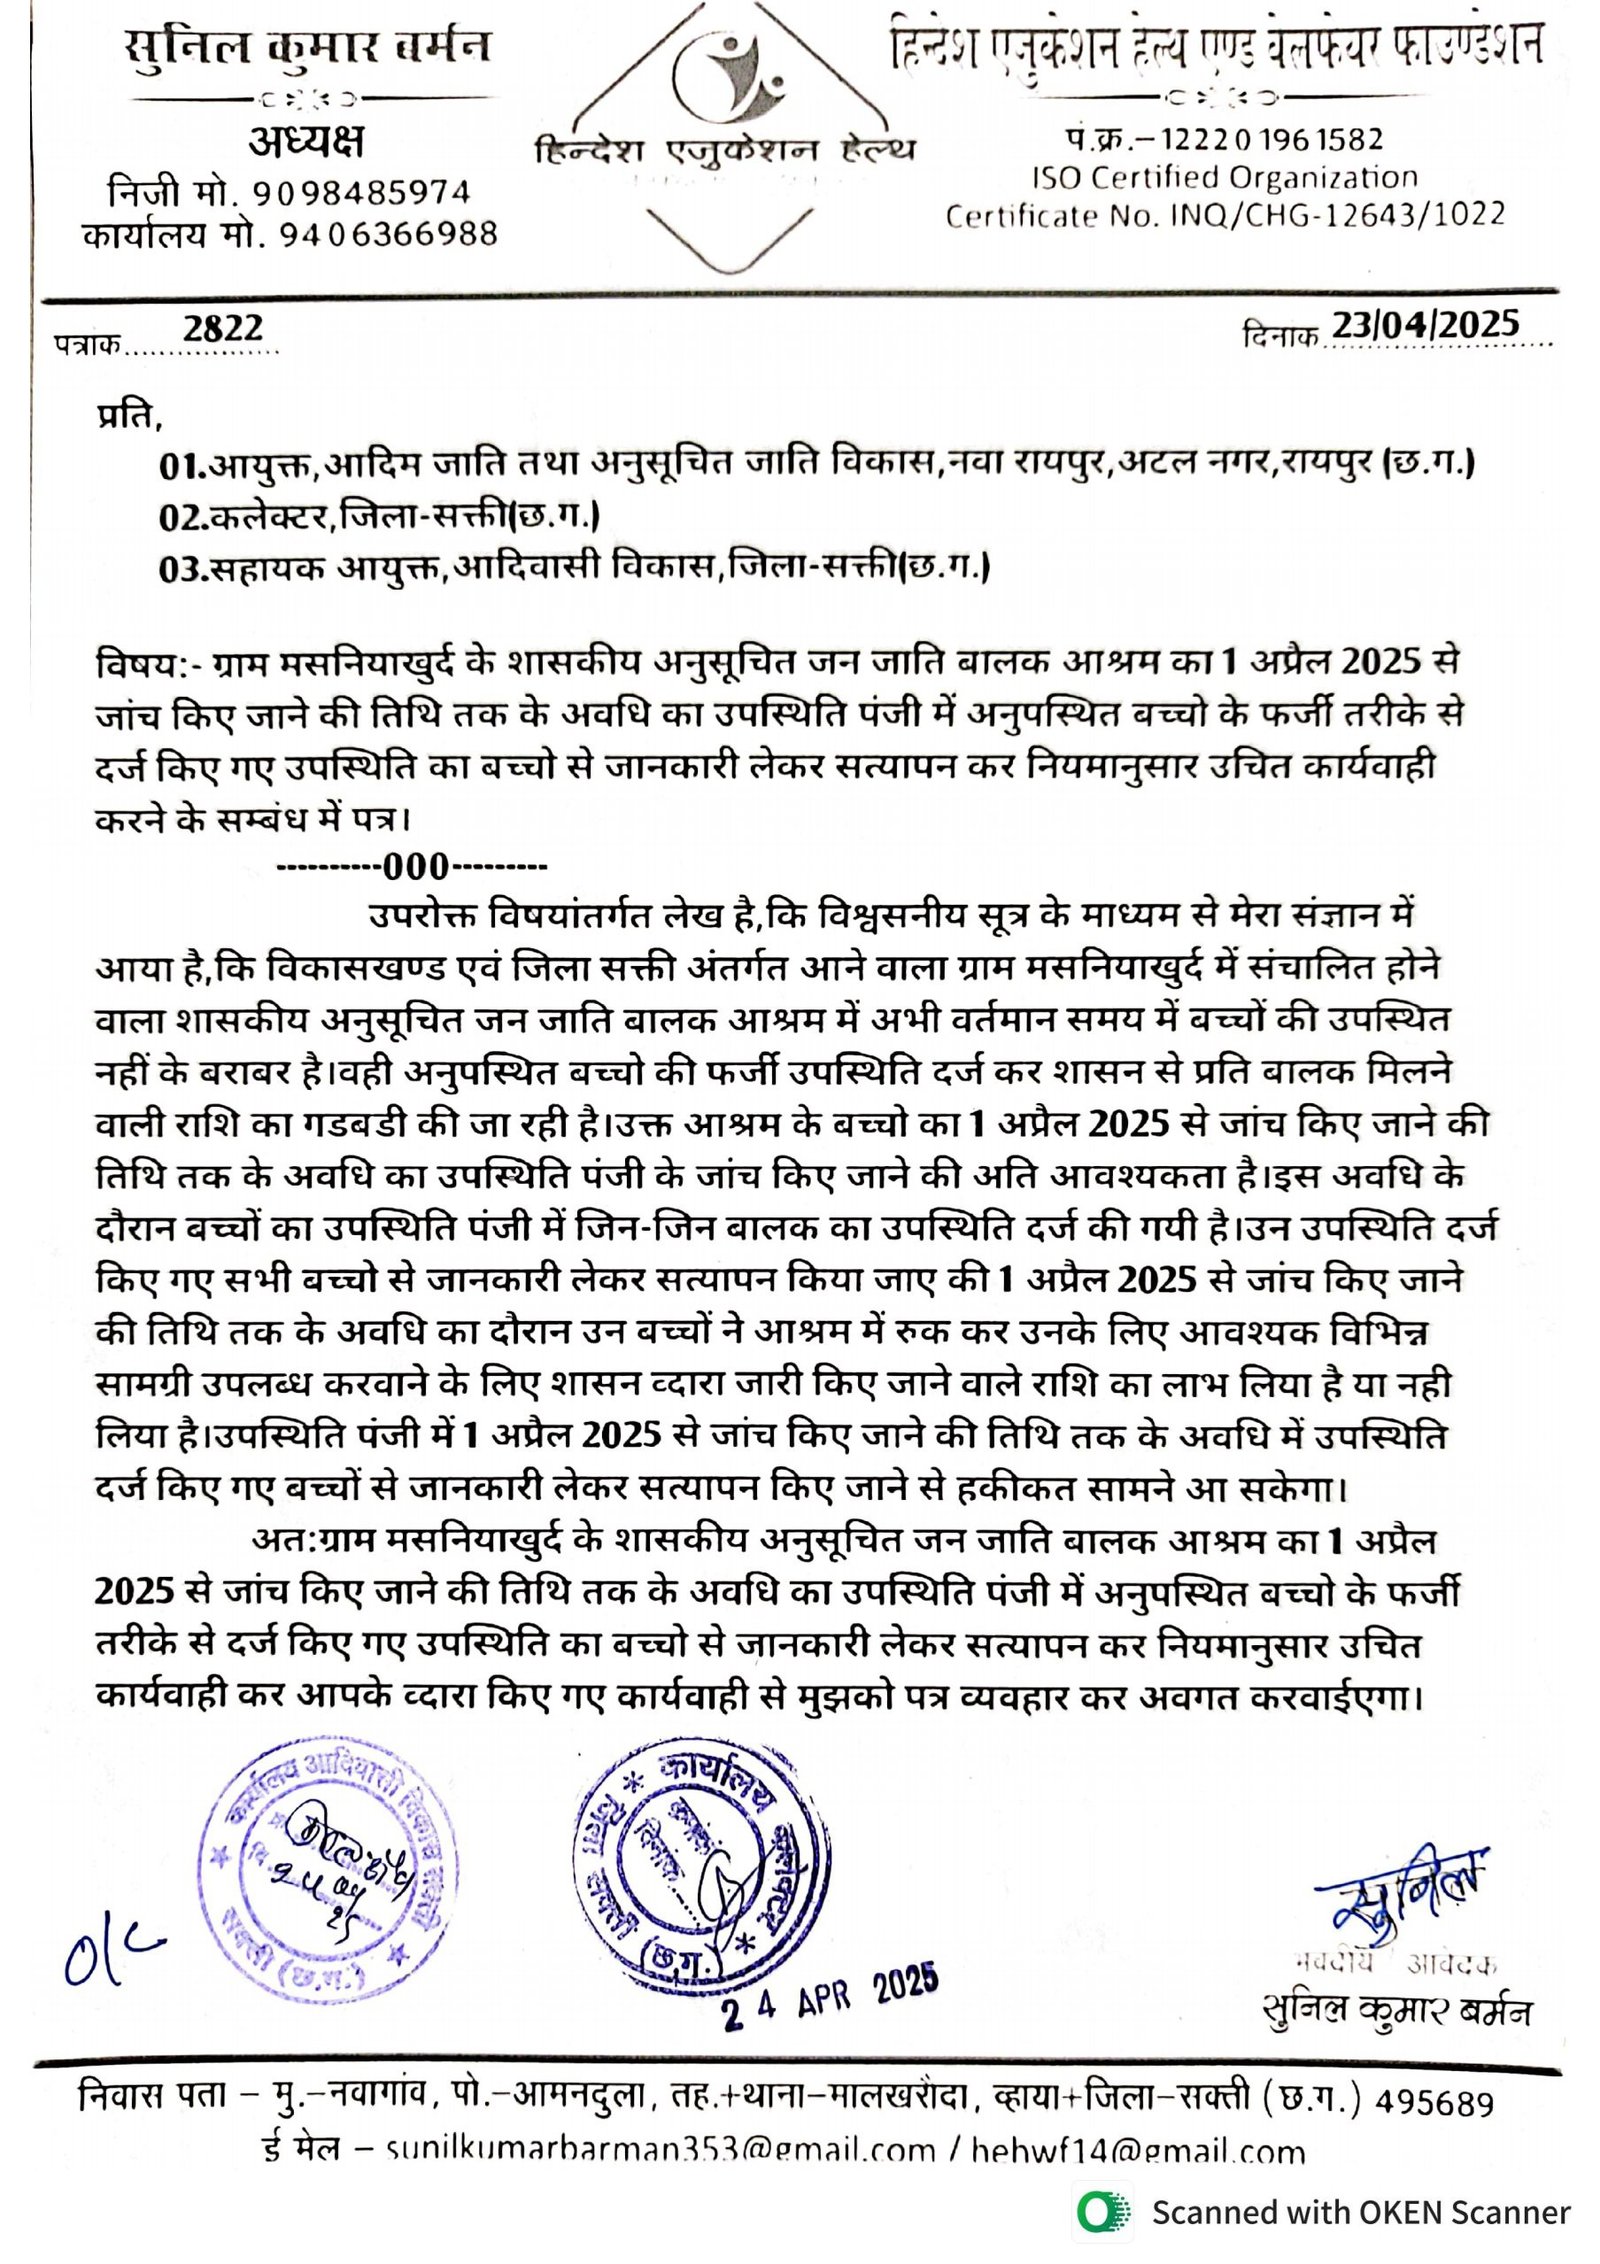 सुनिल कुमार बर्मन
अध्यक्ष
निजी मो. 9098485974
कार्यालय मो. 9406366988
हिन्देश एजुकेशन हेल्थ
हिन्देश एजुकेशन हेल्थ एण्ड वेलफेयर फाउण्डेशन
पं.क्र.–12220 1961582
ISO Certified Organization
Certificate No. INQ/CHG-12643/1022
पत्राक 2822
दिनाक 23/04/2025
प्रति,
01.आयुक्त,आदिम जाति तथा अनुसूचित जाति विकास,नवा रायपुर,अटल नगर,रायपुर (छ.ग.)
02.कलेक्टर,जिला-सक्ती(छ.ग.)
03.सहायक आयुक्त,आदिवासी विकास,जिला-सक्ती(छ.ग.)
विषय:- ग्राम मसनियाखुर्द के शासकीय अनुसूचित जन जाति बालक आश्रम का 1 अप्रैल 2025 से
जांच किए जाने की तिथि तक के अवधि का उपस्थिति पंजी में अनुपस्थित बच्चो के फर्जी तरीके से
दर्ज किए गए उपस्थिति का बच्चो से जानकारी लेकर सत्यापन कर नियमानुसार उचित कार्यवाही
करने के सम्बंध में पत्र।
----------000---------
उपरोक्त विषयांतर्गत लेख है,कि विश्वसनीय सूत्र के माध्यम से मेरा संज्ञान में
आया है,कि विकासखण्ड एवं जिला सक्ती अंतर्गत आने वाला ग्राम मसनियाखुर्द में संचालित होने
वाला शासकीय अनुसूचित जन जाति बालक आश्रम में अभी वर्तमान समय में बच्चों की उपस्थित
नहीं के बराबर है।वही अनुपस्थित बच्चो की फर्जी उपस्थिति दर्ज कर शासन से प्रति बालक मिलने
वाली राशि का गडबडी की जा रही है।उक्त आश्रम के बच्चो का 1 अप्रैल 2025 से जांच किए जाने की
तिथि तक के अवधि का उपस्थिति पंजी के जांच किए जाने की अति आवश्यकता है।इस अवधि के
दौरान बच्चों का उपस्थिति पंजी में जिन-जिन बालक का उपस्थिति दर्ज की गयी है।उन उपस्थिति दर्ज
किए गए सभी बच्चो से जानकारी लेकर सत्यापन किया जाए की 1 अप्रैल 2025 से जांच किए जाने
की तिथि तक के अवधि का दौरान उन बच्चों ने आश्रम में रुक कर उनके लिए आवश्यक विभिन्न
सामग्री उपलब्ध करवाने के लिए शासन व्दारा जारी किए जाने वाले राशि का लाभ लिया है या नही
लिया है।उपस्थिति पंजी में 1 अप्रैल 2025 से जांच किए जाने की तिथि तक के अवधि में उपस्थिति
दर्ज किए गए बच्चों से जानकारी लेकर सत्यापन किए जाने से हकीकत सामने आ सकेगा।
अत:ग्राम मसनियाखुर्द के शासकीय अनुसूचित जन जाति बालक आश्रम का 1 अप्रैल
2025 से जांच किए जाने की तिथि तक के अवधि का उपस्थिति पंजी में अनुपस्थित बच्चो के फर्जी
तरीके से दर्ज किए गए उपस्थिति का बच्चो से जानकारी लेकर सत्यापन कर नियमानुसार उचित
कार्यवाही कर आपके व्दारा किए गए कार्यवाही से मुझको पत्र व्यवहार कर अवगत करवाईएगा।
कार्यालय आदिवासी विकास सक्ती
सक्ती (छ.ग.)
कार्यालय कलेक्टर
जिला सक्ती (छ.ग.)
क्रमांक
दिनांक
24 APR 2025
o/c
सुनिल
भवदीय आवेदक
सुनिल कुमार बर्मन
निवास पता – मु.–नवागांव, पो.–आमनदुला, तह.+थाना–मालखरौदा, व्हाया+जिला–सक्ती (छ.ग.) 495689
ई मेल – sunilkumarbarman353@gmail.com / hehwf14@gmail.com
Scanned with OKEN Scanner